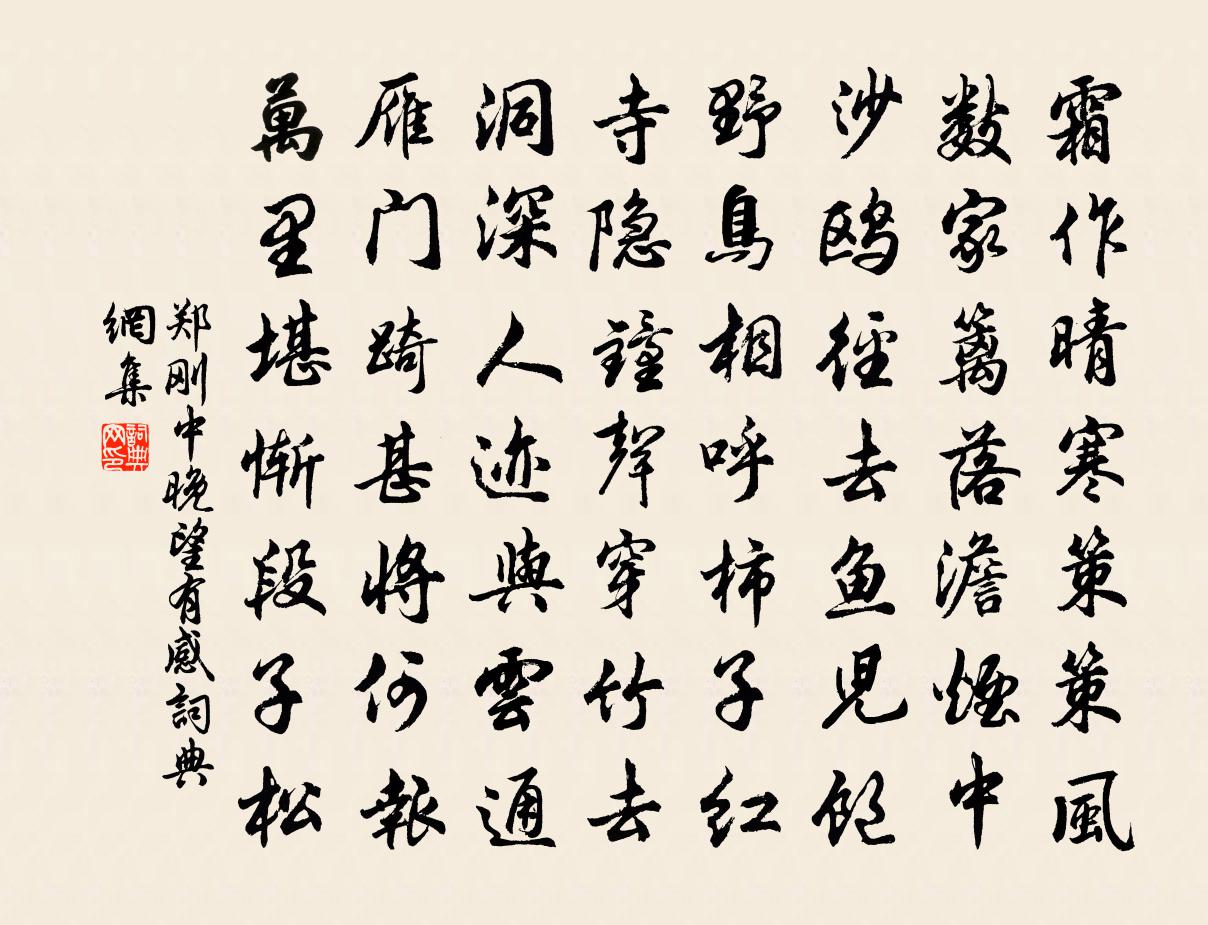 霜作晴寒策策風
數家篱落澹煙中
沙鸥徑去魚児飽
野鳥相呼柿子红
寺隐鐘聲穿竹去
洞深人迹與雲通
雁门踦甚將何報
萬里堪惭段子松
郑刚中晚望有感詞典
網集
詞典网印